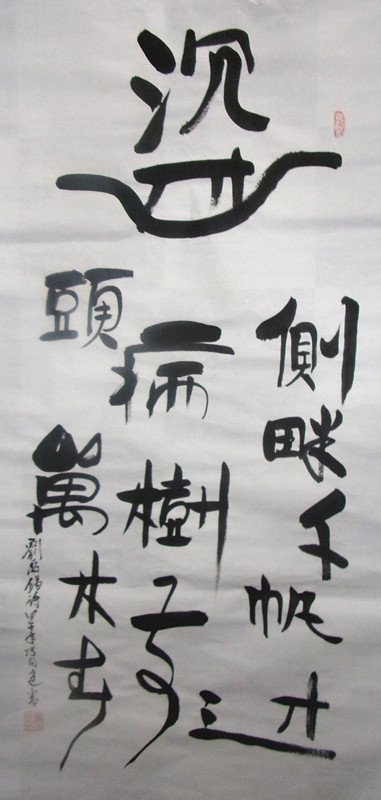 沉舟
側畔千帆过
病樹前
頭萬木春
劉禹錫詩甲午年